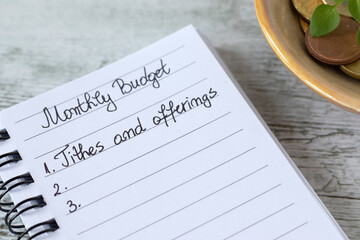 Monthly Budget
1. Tithes and offerings
2.
3.